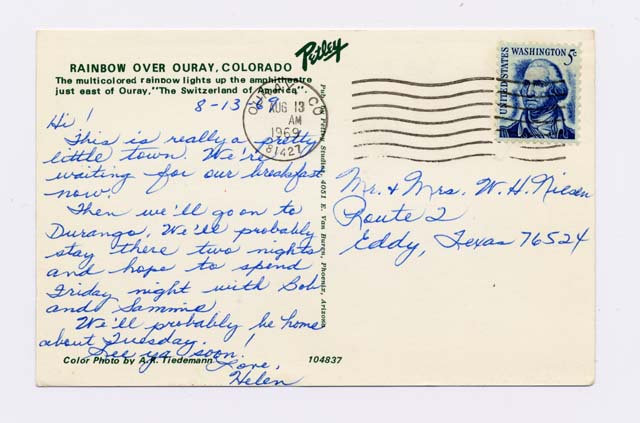 RAINBOW OVER OURAY, COLORADO
The multicolored rainbow lights up the amphitheatre
just east of Ouray, "The Switzerland of America".
Petley
8-13-69
Hi!
This is really a pretty
little town. We're
waiting for our breakfast
now.
Then we'll go on to
Durango. We'll probably
stay there two nights
and hope to spend
Friday night with Bob
and Sammie
We'll probably be home
about Tuesday.
See ya soon!
Love,
Helen
Color Photo by A.R. Tiedemann
104837
Pub. by Petley Studios, 4051 E. Van Buren, Phoenix, Arizona
OURAY, CO
AUG 13
AM
1969
81427
UNITED STATES
WASHINGTON 5c
Mr. & Mrs. W. H. Nilsen
Route 2
Eddy, Texas 76524